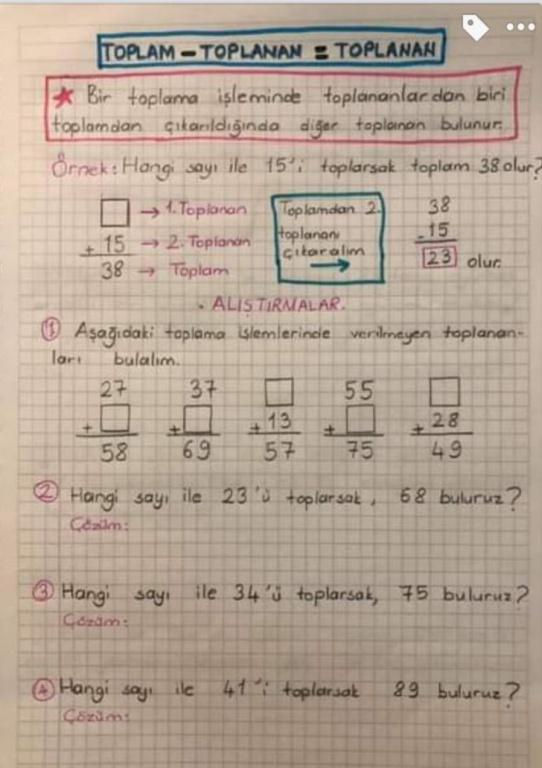 TOPLAM - TOPLANAN = TOPLANAN
★ Bir toplama işleminde toplananlardan biri
toplamdan çıkarıldığında diğer toplanan bulunur.
Örnek: Hangi sayı ile 15'i toplarsak toplam 38 olur?
□ → 1. Toplanan
+ 15 → 2. Toplanan
38 → Toplam
Toplamdan 2.
toplananı
çıkaralım
→
38
- 15
23 olur.
. ALIŞTIRMALAR.
① Aşağıdaki toplama işlemlerinde verilmeyen toplanan-
ları bulalım.
27 37 □ 55 □
+ □ + □ + 13 + □ + 28
58 69 57 75 49
② Hangi sayı ile 23'ü toplarsak, 68 buluruz?
Çözüm:
③ Hangi sayı ile 34'ü toplarsak, 75 buluruz?
Çözüm:
④ Hangi sayı ile 41'i toplarsak 89 buluruz?
Çözüm: